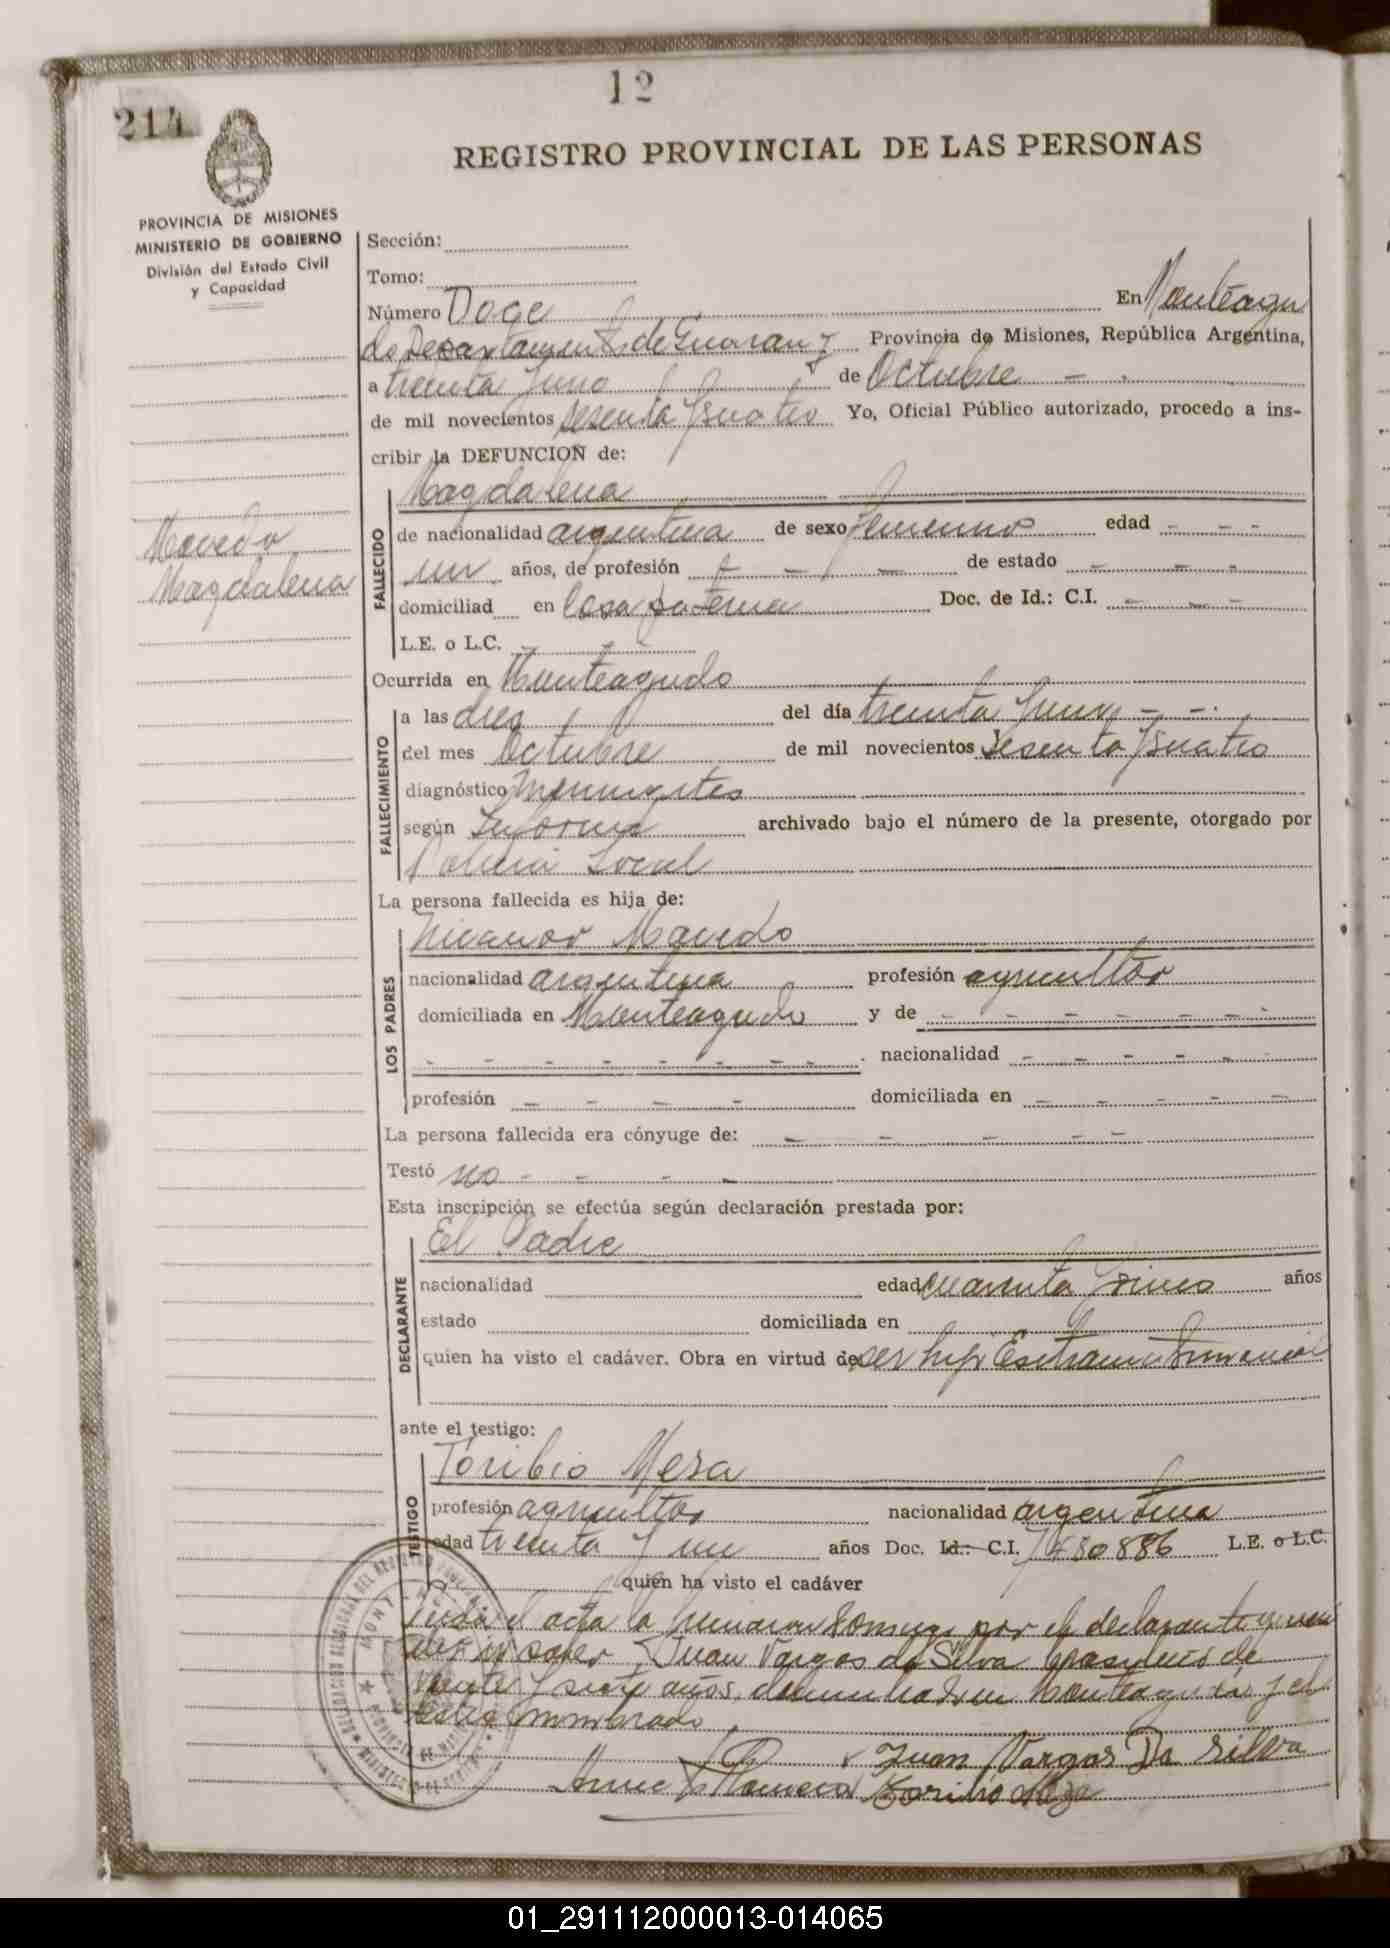 12
214
REGISTRO PROVINCIAL DE LAS PERSONAS
PROVINCIA DE MISIONES
MINISTERIO DE GOBIERNO
División del Estado Civil
y Capacidad
Sección:
Tomo:
Número Doce En Monteagu
do Departamento de Guaraní Provincia de Misiones, República Argentina,
a treinta y uno de Octubre
de mil novecientos sesenta y cuatro Yo, Oficial Público autorizado, procedo a ins-
cribir la DEFUNCION de:
Macedo
Magdalena
FALLECIDO
Magdalena
de nacionalidad argentina de sexo femenino edad - - -
un años, de profesión - - - de estado - - -
domiciliad en Casa paterna Doc. de Id.: C.I. - - -
L.E. o L.C.
Ocurrida en Monteagudo
FALLECIMIENTO
a las diez del día treinta y uno - -
del mes Octubre de mil novecientos sesenta y cuatro
diagnóstico Meningitis
según Informe archivado bajo el número de la presente, otorgado por
Policía Local
La persona fallecida es hija de:
LOS PADRES
Nicanor Macedo
nacionalidad argentina profesión agricultor
domiciliada en Monteagudo y de - - - - - -
- - - - - - - nacionalidad - - - - -
profesión - - - - domiciliada en - - - - -
La persona fallecida era cónyuge de: - - - - -
Testó no - - - -
Esta inscripción se efectúa según declaración prestada por:
DECLARANTE
El Padre
nacionalidad edad cuarenta y cinco años
estado domiciliada en
quien ha visto el cadáver. Obra en virtud de ser hija Extramatrimonial
ante el testigo:
TESTIGO
Toribio Meza
profesión agricultor nacionalidad argentina
edad treinta y un años Doc. Id.: C.I. 7480886 L.E. o L.C.
quien ha visto el cadáver
Leida el acta la firmaron conmigo por el declarante
no saber Juan Vargas da Silva brasilero de
veinte y siete años, domiciliado en Monteagudo y el
testigo nombrado
Juan Vargas Da Silva
Toribio Meza
01_291112000013-014065